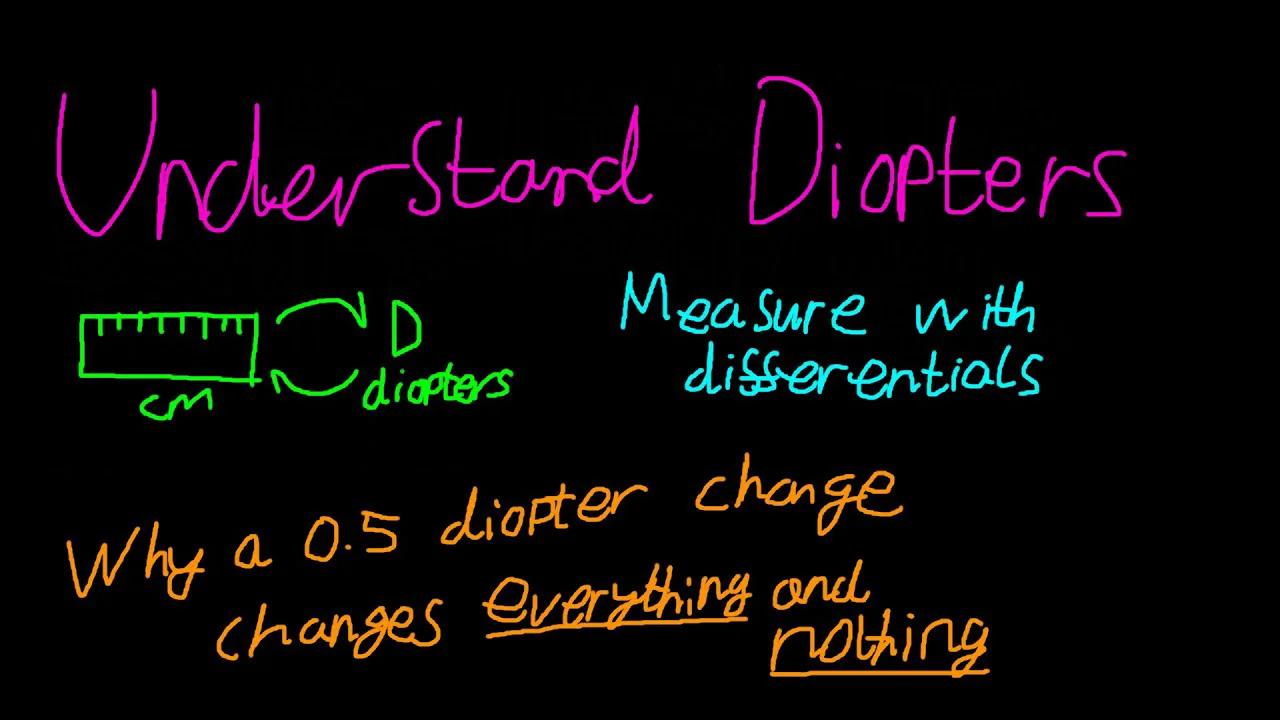 Understand Diopters
D
diopters
cm
Measure with
differentials
Why a 0.5 diopter change
changes everything and
nothing